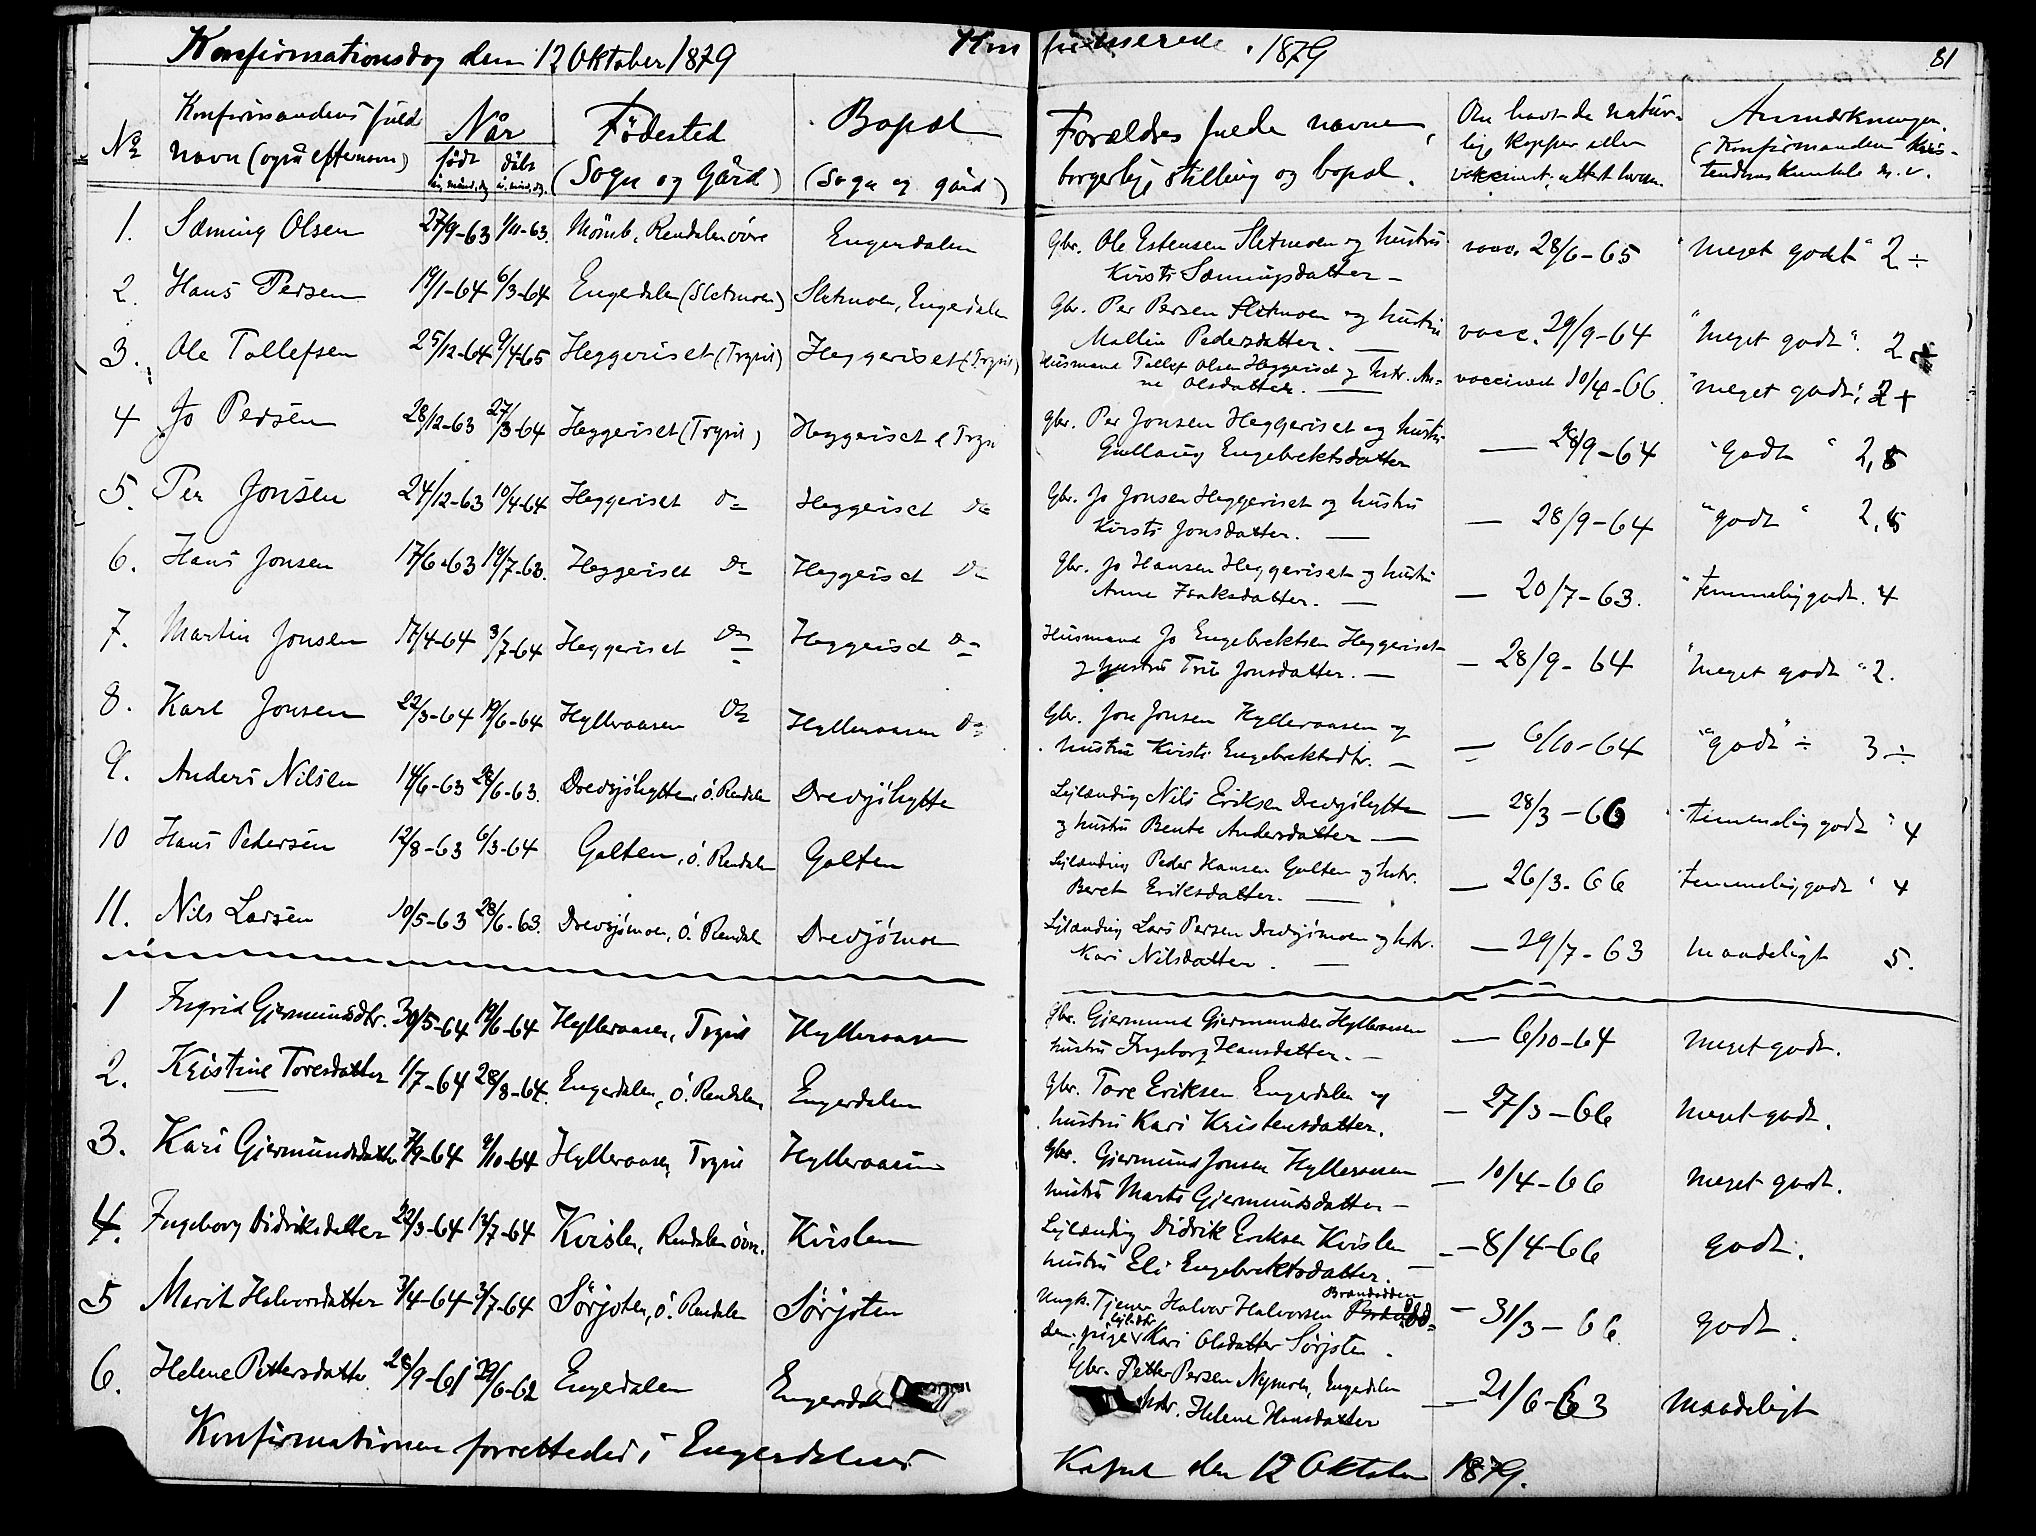 Konfirmationsdag den 12 Oktober 1879 Konfirmerede 1879 81
No Konfirmandens fuld navn (også efternavn) Når født døbt Fødested (Sogn og Gård) Bopæl (Sogn og gård) Forældres fulde navne, borgerlige stilling og bopæl. Om havt de naturlige kopper eller vakcineret, attest herom. Anmærkninger. (Konfirmandens kristendomskundsk. m. v.
1. Sæming Olsen 27/9-63 1/11-63. Rendalen øvre Engerdalen Gbr. Ole Estensen Sletmoen og hustru vacc. 28/6-65 "meget godt" 2 ÷
Kirsti Sæmingsdatter —
2. Hans Persen 19/1-64 6/3-64 Engerdalen (Sletmoen) Sletmoen, Engerdalen Gbr. Per Persen Sletmoen og hustru vacc. 29/9-64 "Meget godt". 2
Mallin Pedersdatter. —
3. Ole Tollefsen 25/12-64 9/4-65 Heggeriset (Trysil) Heggeriset (Trysil) Husmand Tollef Olsen Heggeriset og hstr. An= vaccineret 10/4-66. "meget godt", 2 +
ne Olsdatter. —
4 Jo Persen 28/12-63 27/3-64 Heggeriset (Trysil) Heggeriset (Trys Gbr. Per Jonsen Heggeriset og hustru — 28/9-64 "godt" 2,5
Gullaug Engebrektsdatter
5. Per Jonsen 24/12-63 10/4-64 Heggeriset Do Heggeriset Do Gbr. Jo Jonsen Heggeriset og hustru — 28/9-64 "godt" 2,5
Kirsti Jonsdatter. —
6. Hans Jonsen 17/6-63 19/7-63. Heggeriset Do Heggeriset Do Gbr. Jo Hansen Heggeriset og hustru — 20/7-63. "temmelig godt. 4
Anne Isaksdatter. —
7. Martin Jonsen 17/4-64 3/7-64 Heggeriset Do Heggeriset Do Husmand Jo Engebrektsen Heggeriset — 28/9-64 "Meget godt" 2.
og hustru Jonsdatter. —
8. Karl Jonsen 22/3-64 19/6-64 Hylleraasen Do Hylleraasen Do Gbr. Jon Jonsen Hylleraasen og — 6/10-64 "godt" ÷ 3 ÷
hustru Kirsti Engebrektsdtr. —
9. Anders Nilsen 14/6-63 28/6-63. Drevsjøhytten, Ø. Rendalen Drevsjøhytte Leilænding Nils Eriksen Drevsjøhytten — 28/3-66 "temmelig godt" 4
og hustru Bente Andersdatter —
10 Hans Pedersen 12/8-63 6/3-64 Galten, Ø. Rendalen Galten Leilænding Peder Hansen Galten og hstr. — 26/3-66 temmelig godt" 4
Beret Eriksdatter. —
11. Nils Larsen 10/5-63 28/6-63. Drevsjømoen, Ø. Rendal Drevsjømoen Leilænding Lars Persen Drevsjømoen og hstr. — 29/7-63 Maadeligt 5.
Kari Nilsdatter. —
1 Ingrid Gjermundsdtr. 30/5-64 19/6-64 Hylleraasen, Trysil Hylleraasen Gbr. Gjermund Gjermundsen Hylleraasen — 6/10-64 Meget godt.
hustru Ingeborg Hansdatter. —
2. Kristine Toresdatter 1/7-64 28/8-64. Engerdalen, Ø. Rendalen Engerdalen Gbr. Tore Eriksen Engerdalen og — 27/3-66 Meget godt.
hustru Kari Kristensdatter.
3. Kari Gjermundsdatter 7/9-64 9/10-64 Hylleraasen, Trysil Hylleraasen Gbr. Gjermund Jonsen Hylleraasen — 10/4-66 Meget godt.
hustru Marte Gjermundsdatter —
4. Ingeborg Didriksdatter 22/3-64 17/7-64 Kvislen, Rendalen øvre. Kvislen Leilænding Didrik Eriksen Kvislen — 8/4-66 godt.
hustru Eli Engebrektsdatter. —
5 Marit Halvorsdatter 3/4-64 3/7-64 Sørjoten, Ø. Rendalen Sørjoten Ungk. Tjener Halvor Halvorsen Brændodden — 31/3-66 godt.
pige Kari Olsdatter Sørjoten.
6. Helene Pettersdatter 28/9-61 29/6-62 Engerdalen Engerdalen Gbr. Petter Persen Nymoen, Engerdalen — 21/6-63 Maadeligt
hstr. Helene Hansdatter
Konfirmationen forrettedes i Engerdalens Kapel den 12 Oktober 1879.